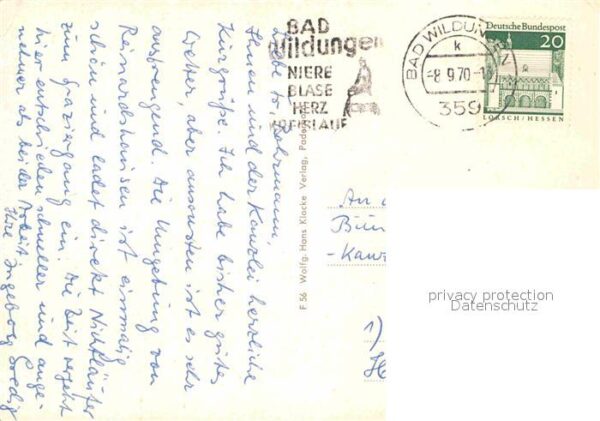 BAD
Wildungen
NIERE
BLASE
HERZ
KREISLAUF
BAD WILDUNGEN
k
-8.9.70-1
359
Deutsche Bundespost
20
LORSCH/HESSEN
Ihnen und der Kanzlei herzliche
Kurgrüße. Ich habe bisher gutes
Wetter, aber ansonsten ist es sehr
anstrengend. Die Umgebung von
Reinhardshausen ist einmalig
schön und ladet direkt Nichtläufer
zum Spaziergang ein. Die Zeit vergeht
hier entschieden schneller und ange-
nehmer als bei der Arbeit
Ihre Ingeborg
F 56 Wolfg. Hans Klocke Verlag, Paderborn
An
Bün
-Kanz
1)
privacy protection
Datenschutz